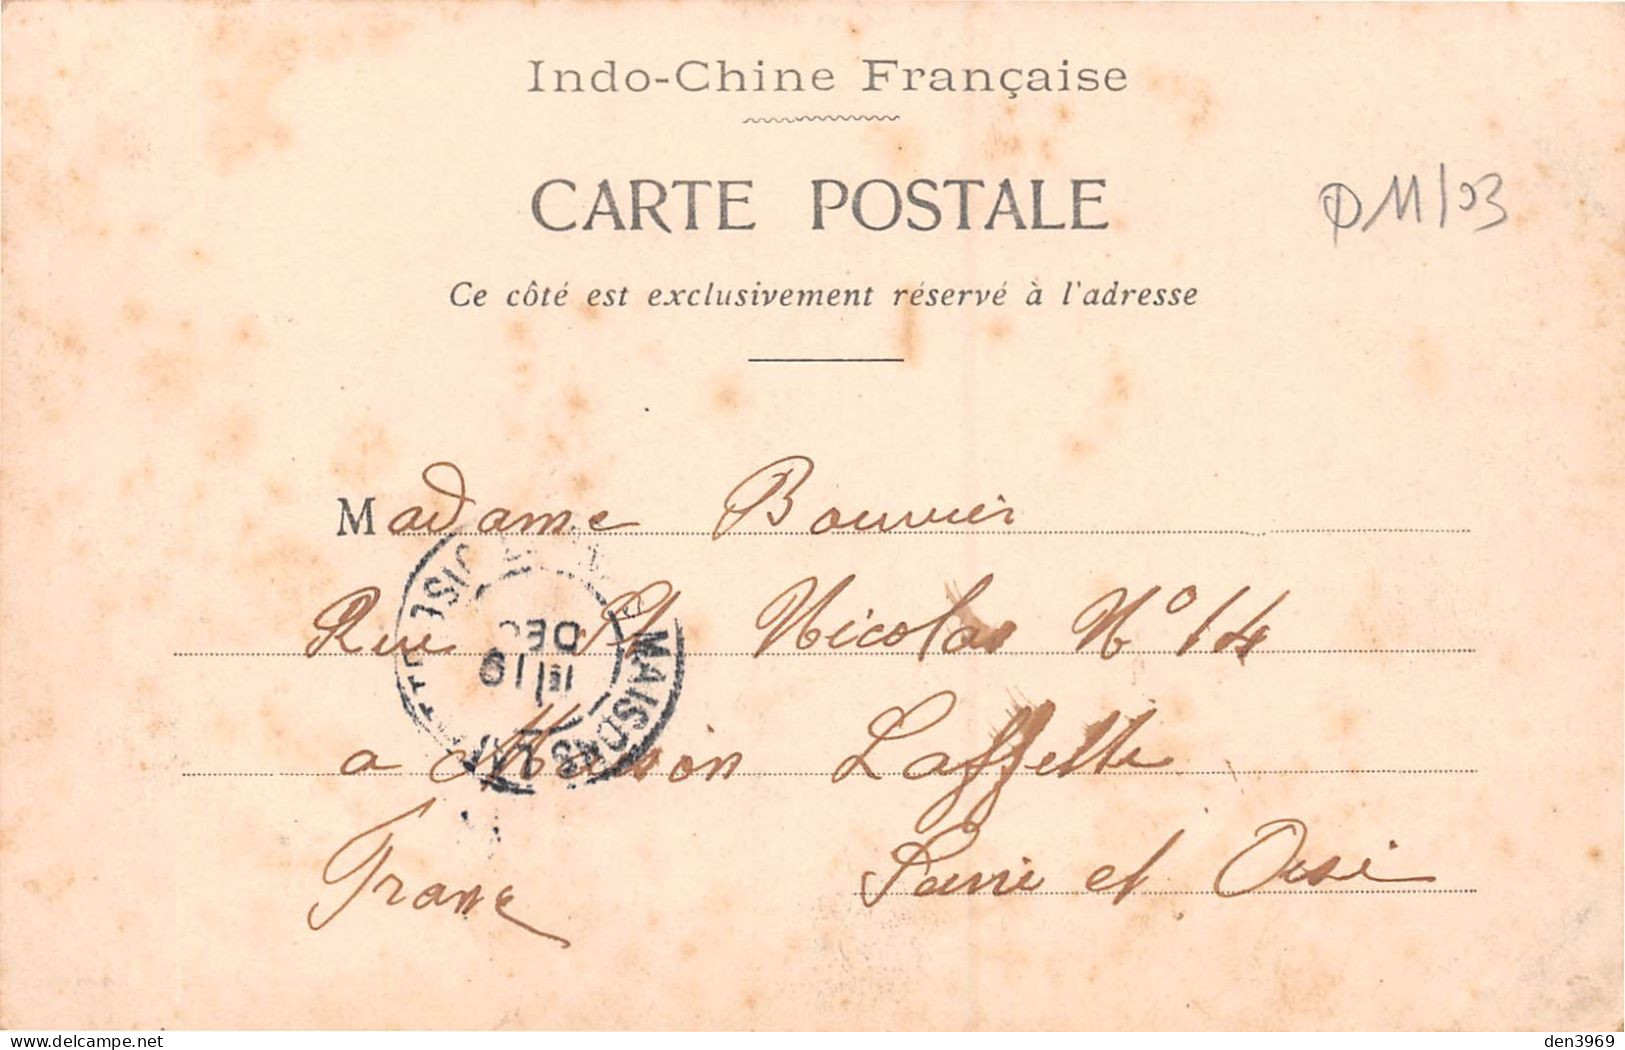 Indo-Chine Française
CARTE POSTALE
Ce côté est exclusivement réservé à l'adresse
Madame Bouvier
Rue St Nicolas N° 14
a Maison Laffette
Seine et Oise
France
MAISONS
DEC
den3969